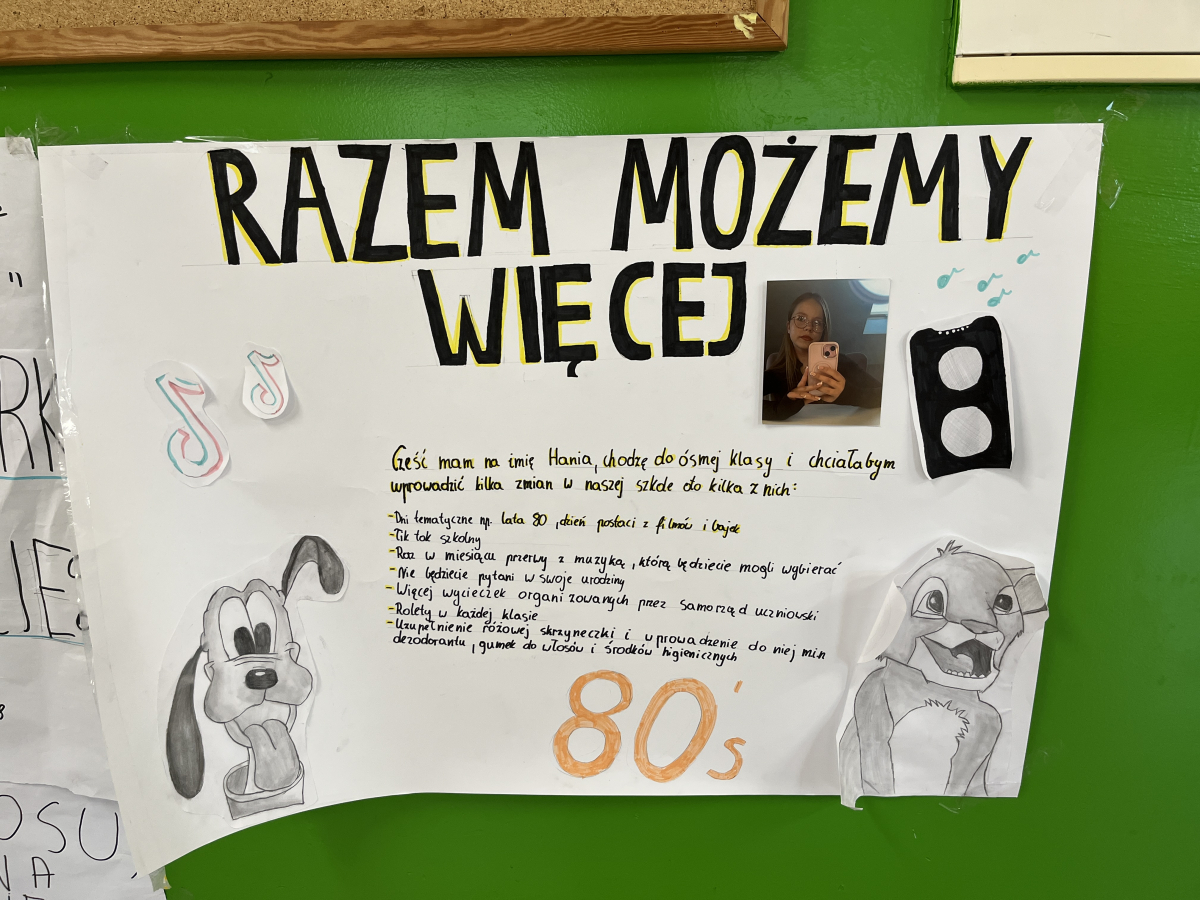 RAZEM MOŻEMY
WIĘCEJ
Cześć mam na imię Hania, chodzę do ósmej klasy i chciałabym
wprowadzić kilka zmian w naszej szkole oto kilka z nich:
-Dni tematyczne np. lata 80, dzień postaci z filmów i bajek
-Tik tok szkolny
-Raz w miesiącu przerwy z muzyką, którą będziecie mogli wybierać
-Nie będziecie pytani w swoje urodziny
-Więcej wycieczek organizowanych przez Samorząd uczniowski
-Rolety w każdej klasie
-Uzupełnienie różowej skrzyneczki i wprowadzenie do niej min
dezodorantu, gumek do włosów i środków higienicznych
80's
RK
JES
OSU
NA